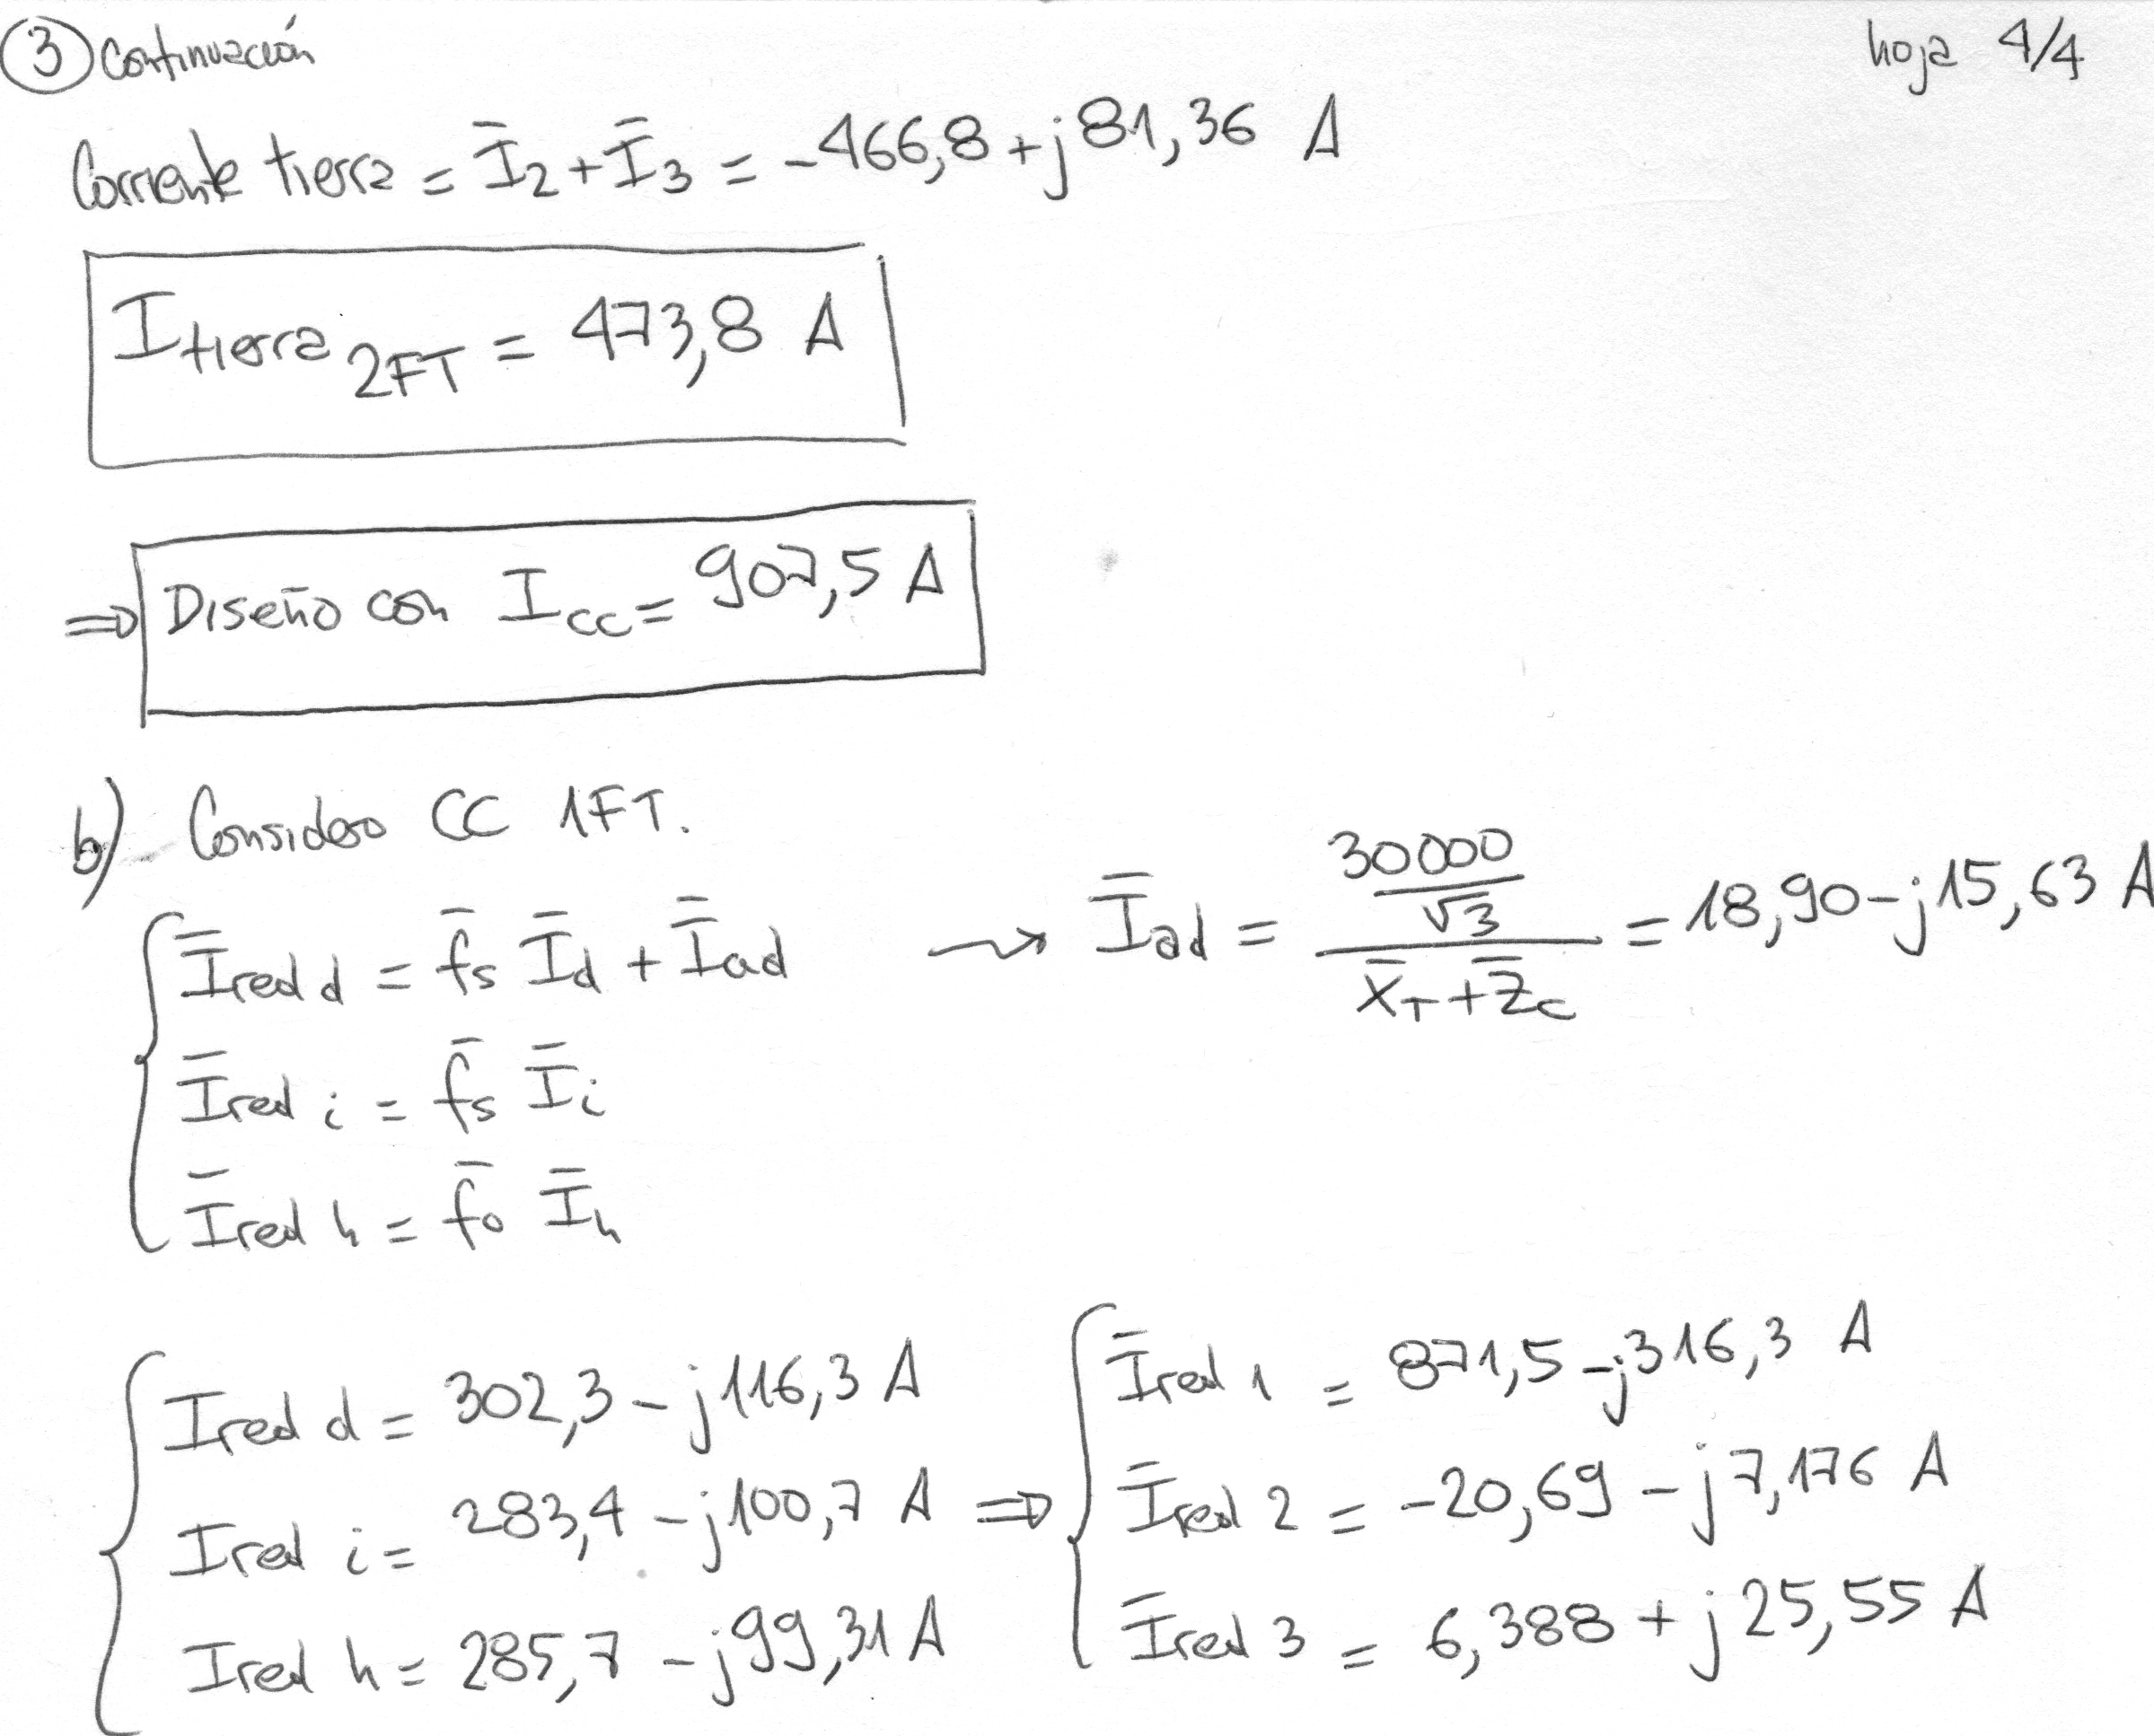 ③ Continuación
hoja 4/4
Corriente tierra = Ī₂ + Ī₃ = -466,8 + j81,36 A
I tierra 2FT = 473,8 A
⇒ Diseño con Icc = 907,5 A
b) Considero CC 1FT.
Īred d = f̄s Īd + Īad ⇝ Īad = (30000/√3)/(X̄T + Z̄c) = 18,90 - j15,63 A
Īred i = f̄s Īi
Īred h = f̄o Īh
Ired d = 302,3 - j116,3 A
Ired i = 283,4 - j100,7 A ⇒
Ired h = 285,7 - j99,31 A
Īred 1 = 871,5 - j316,3 A
Īred 2 = -20,69 - j7,176 A
Īred 3 = 6,388 + j25,55 A